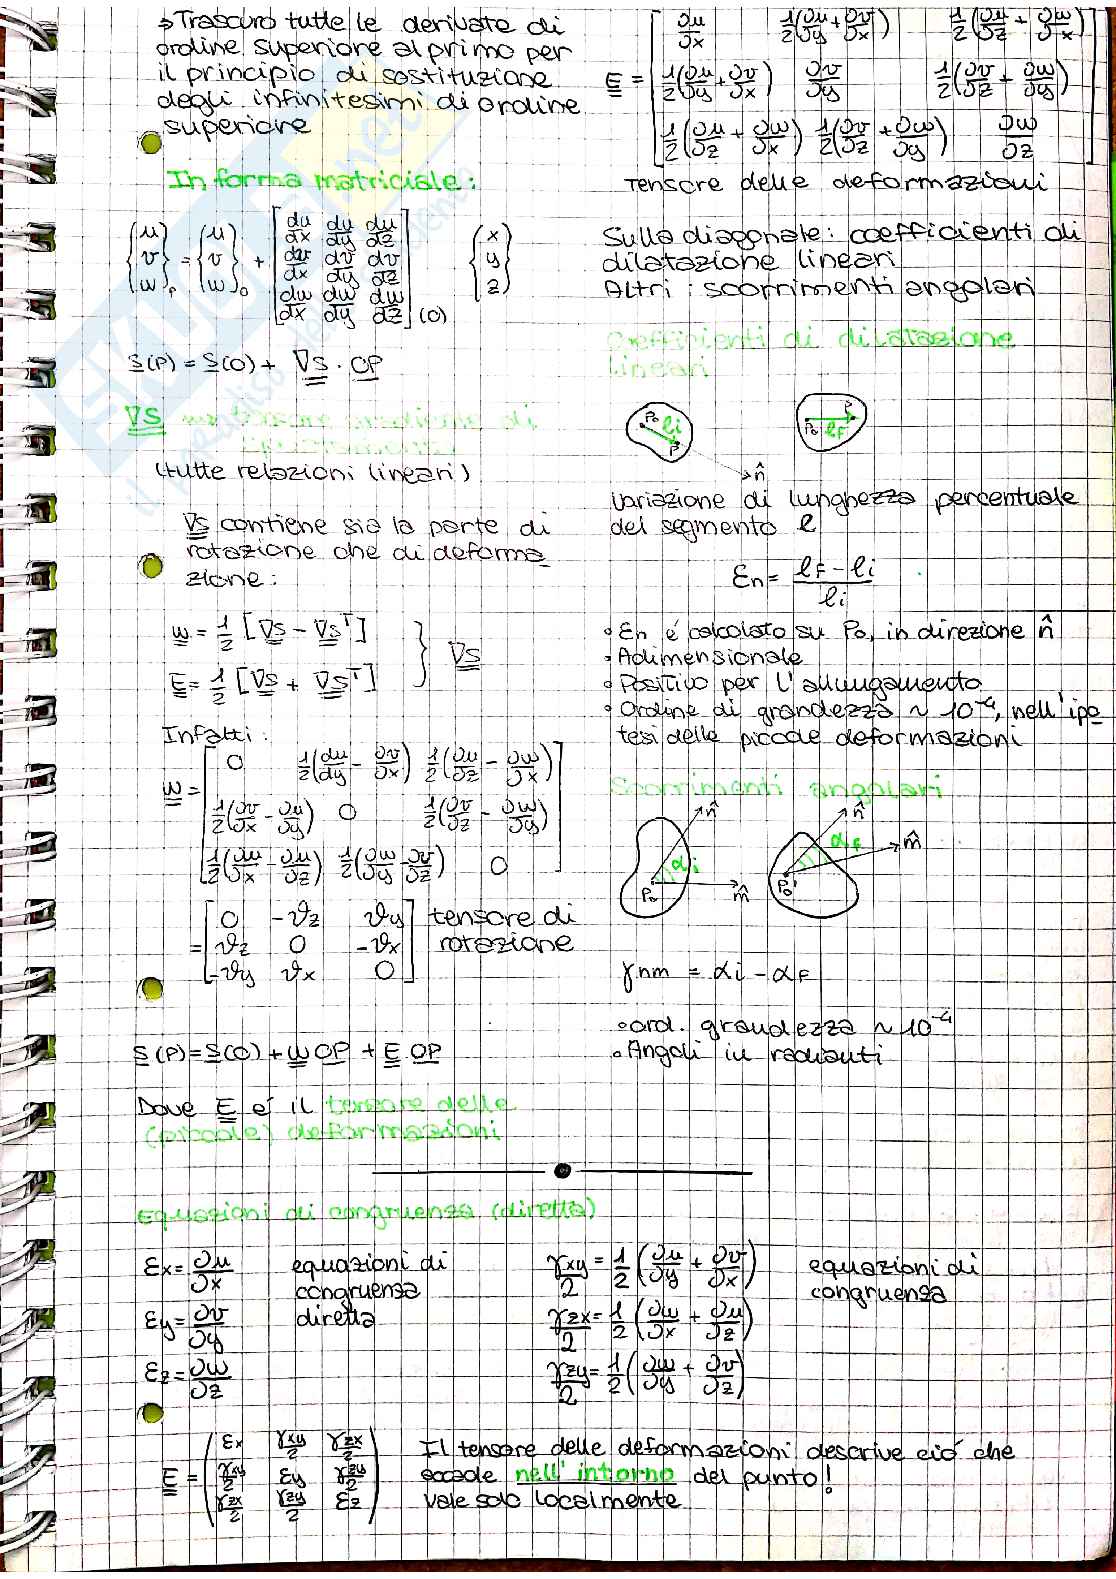 ⇒ Trascuro tutte le derivate di
ordine superiore al primo per
il principio di sostituzione
degli infinitesimi di ordine
superiore
In forma matriciale:
{u v w}p = {u v w}o + [du/dx du/dy du/dz
dv/dx dv/dy dv/dz
dw/dx dw/dy dw/dz](0) {x y z}
S(P) = S(O) + ∇S · OP
∇S tensore gradiente di
(tutte relazioni lineari)
∇S contiene sia la parte di
rotazione che di deforma
zione:
w = 1/2 [∇S - ∇Sᵀ]
E = 1/2 [∇S + ∇Sᵀ] } ∇S
Infatti:
w = [0 1/2(du/dy - ∂v/∂x) 1/2(∂u/∂z - ∂w/∂x)
1/2(∂v/∂x - ∂u/∂y) 0 1/2(∂v/∂z - ∂w/∂y)
1/2(∂u/∂x - ∂u/∂z) 1/2(∂w/∂y - ∂v/∂z) 0]
= [0 -ϑz ϑy
ϑz 0 -ϑx
-ϑy ϑx 0] tensore di
rotazione
S(P) = S(O) + w OP + E OP
Dove E é il tensore delle
(piccole) deformazioni
E = [∂u/∂x 1/2(∂u/∂y + ∂v/∂x) 1/2(∂u/∂z + ∂w/∂x)
1/2(∂u/∂y + ∂v/∂x) ∂v/∂y 1/2(∂v/∂z + ∂w/∂y)
1/2(∂u/∂z + ∂w/∂x) 1/2(∂v/∂z + ∂w/∂y) ∂w/∂z]
Tensore delle deformazioni
Sulla diagonale: coefficienti di
dilatazione lineari
Altri: scorrimenti angolari
Coefficienti di dilatazione
lineari
Po li P n̂
Po lF P
Variazione di lunghezza percentuale
del segmento l
εn = lF - li / li
• εn é calcolato su Po, in direzione n̂
• Adimensionale
• Positivo per l'allungamento
• Ordine di grandezza ~ 10⁻⁴, nell'ipo
tesi delle piccole deformazioni
Scorrimenti angolari
Po αi n̂ m̂
Po' αF n̂ m̂
γnm = αi - αF
• ord. grandezza ~ 10⁻⁴
• Angoli in radianti
Equazioni di congruenza (diretta)
εx = ∂u/∂x
εy = ∂v/∂y
εz = ∂w/∂z
equazioni di
congruenza
diretta
γxy/2 = 1/2 (∂u/∂y + ∂v/∂x)
γzx/2 = 1/2 (∂w/∂x + ∂u/∂z)
γzy/2 = 1/2 (∂w/∂y + ∂v/∂z)
equazioni di
congruenza
E = (εx γxy/2 γzx/2
γxy/2 εy γzy/2
γzx/2 γzy/2 εz)
Il tensore delle deformazioni descrive ció che
accade nell'intorno del punto!
Vale solo localmente